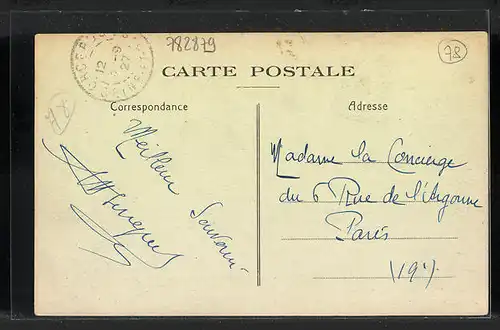 782879
78
12
27
CARTE POSTALE
Correspondance
Adresse
Meilleur
Souvenir
Madame la Concierge
du 6 Rue de l'Argonne
Paris
(19e)